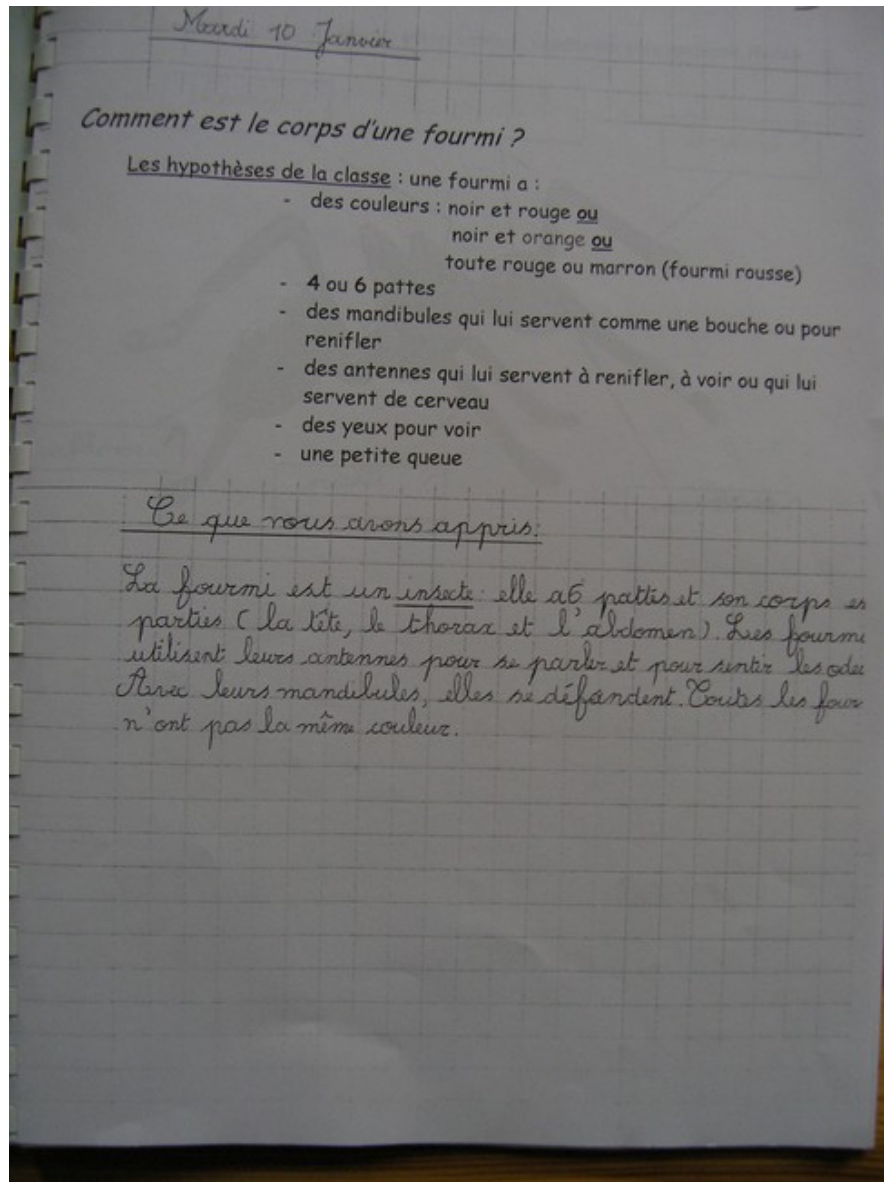 Mardi 10 Janvier
Comment est le corps d'une fourmi ?
Les hypothèses de la classe : une fourmi a :
- des couleurs : noir et rouge ou
noir et orange ou
toute rouge ou marron (fourmi rousse)
- 4 ou 6 pattes
- des mandibules qui lui servent comme une bouche ou pour
renifler
- des antennes qui lui servent à renifler, à voir ou qui lui
servent de cerveau
- des yeux pour voir
- une petite queue
Ce que nous avons appris:
La fourmi est un insecte: elle a 6 pattes et son corps en
parties (la tête, le thorax et l'abdomen). Les fourmi
utilisent leurs antennes pour se parler et pour sentir les ode
Avec leurs mandibules, elles se défendent. Toutes les four
n'ont pas la même couleur.